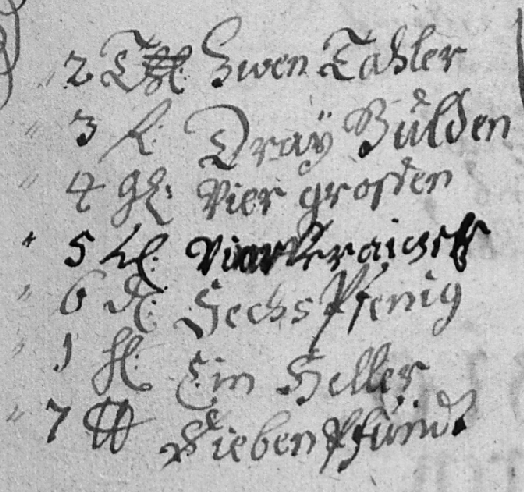 2 Thl. Zwen Tahler
3 fl. Dray̋ Gulden
4 gl: Vier groschen
5 Kl.
6 dl: Sechs Pfenig
1 hl. Ein Heller
7 ℔ Sieben Pfund